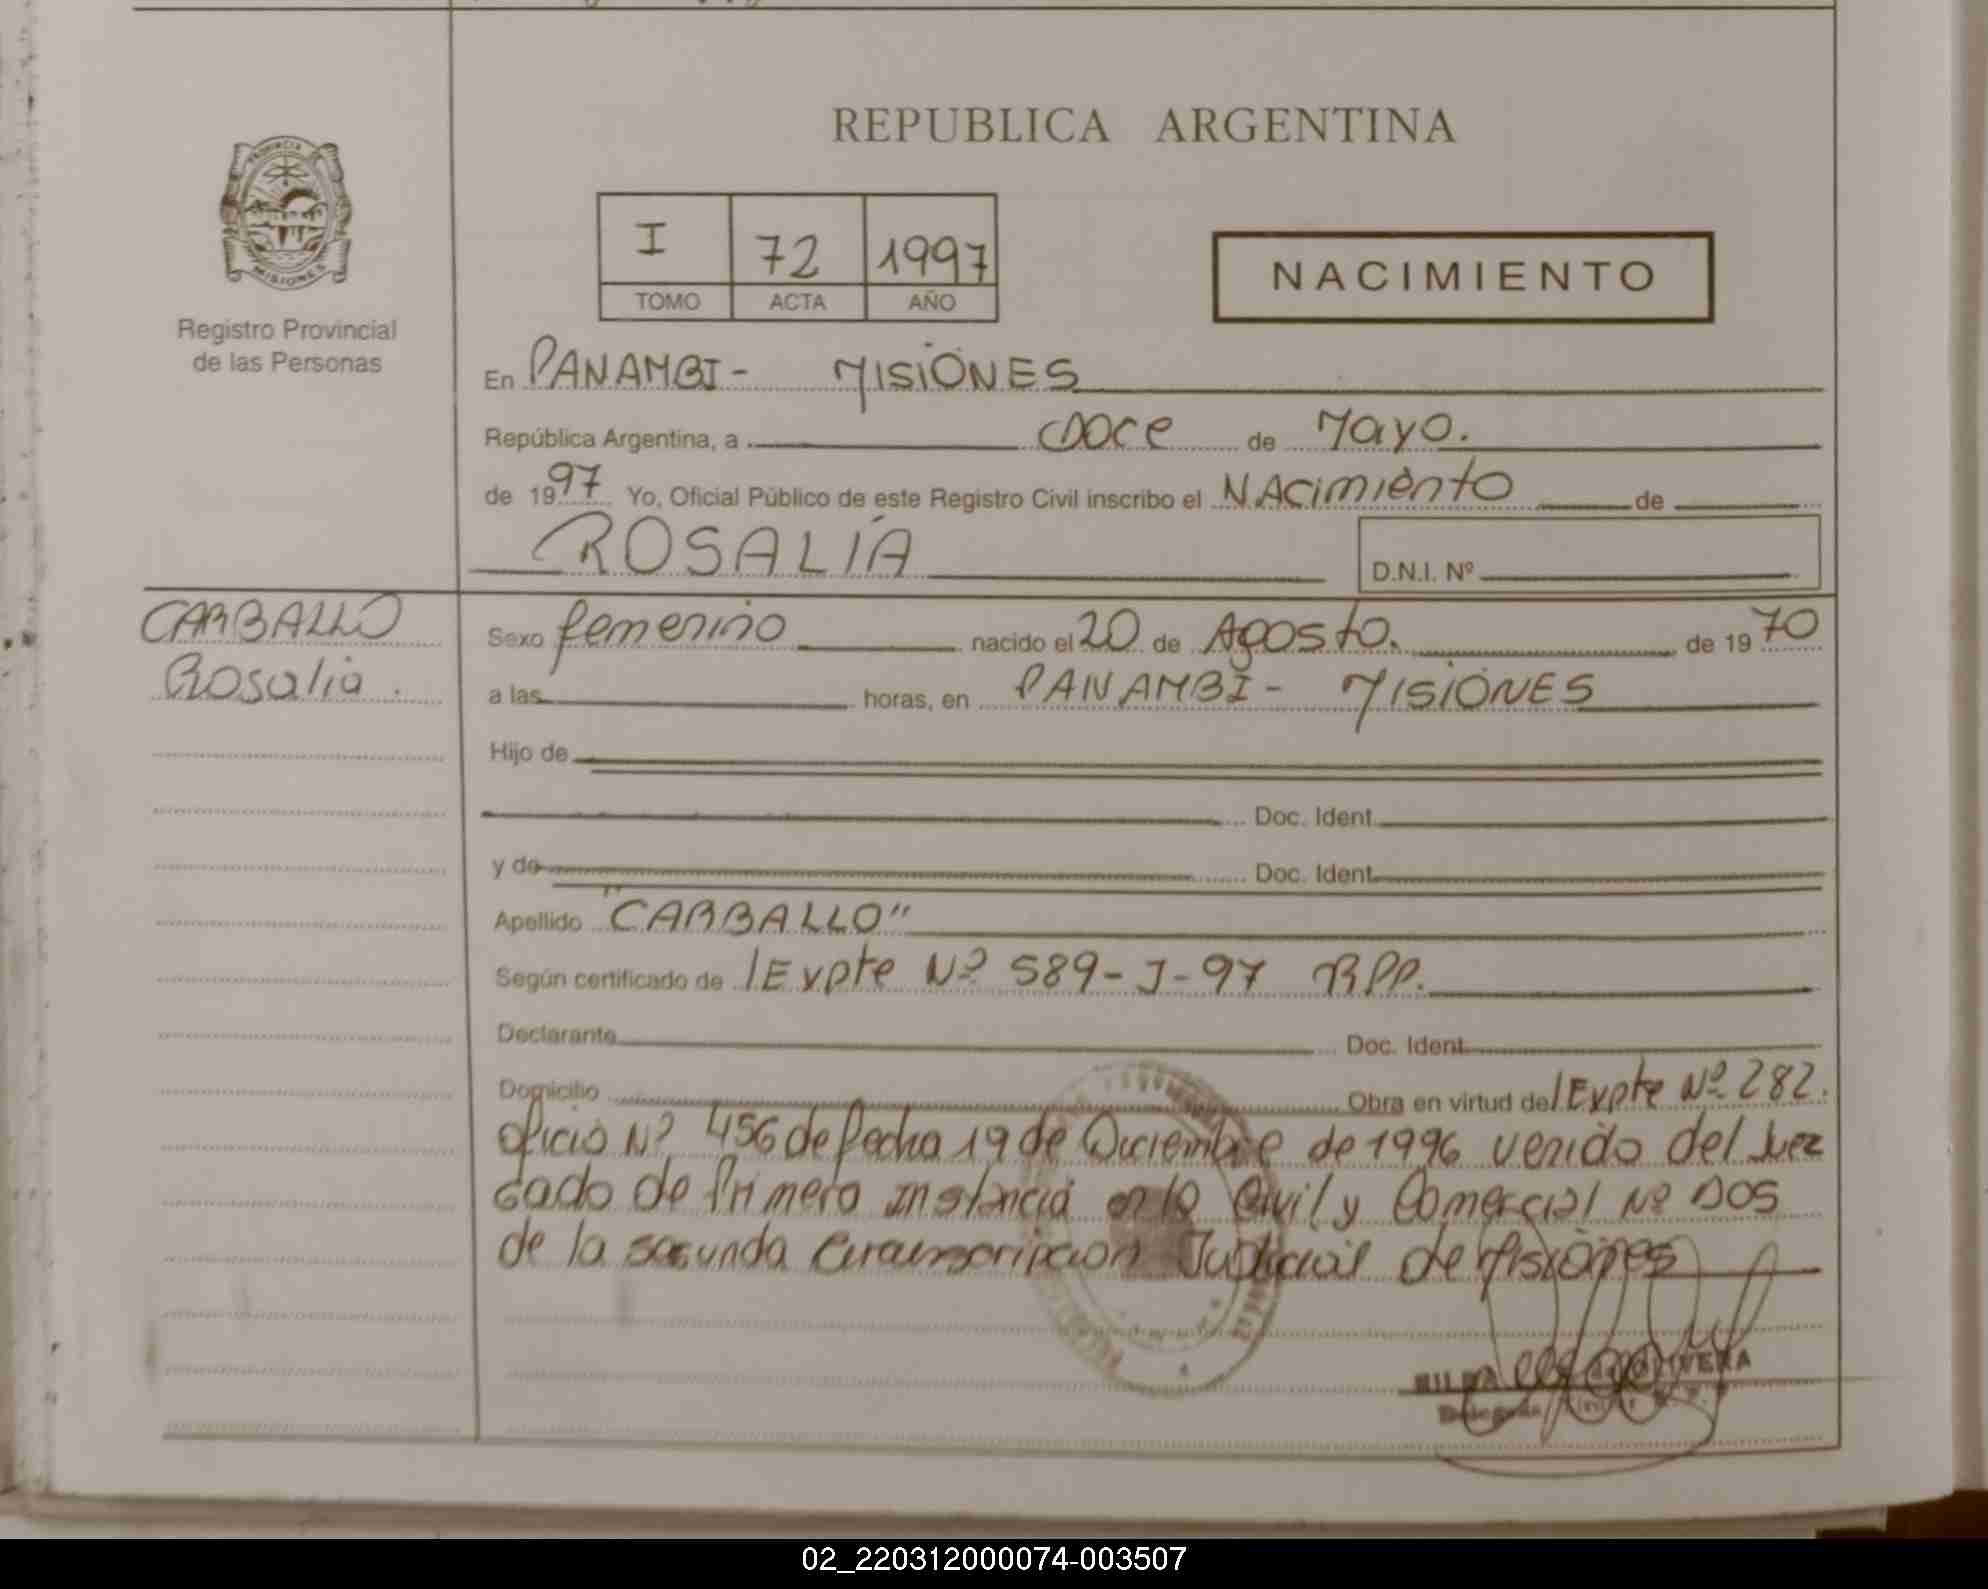 REPUBLICA ARGENTINA
PROVINCIA
MISIONES
Registro Provincial
de las Personas
I 72 1997
TOMO ACTA AÑO
NACIMIENTO
En PANAMBI - MISIONES
República Argentina, a DOCE de Mayo.
de 1997 Yo, Oficial Público de este Registro Civil inscribo el NAcimiento de
ROSALÍA
D.N.I. Nº
CARBALLO
Rosalia.
Sexo femenino nacido el 20 de Agosto. de 1970
a las horas, en PANAMBI - MISIONES
Hijo de
Doc. Ident.
y de Doc. Ident.
Apellido "CARBALLO"
Según certificado de Expte Nº 589-J-97 RPP.
Declarante Doc. Ident.
Domicilio Obra en virtud de Expte Nº 282.
oficio Nº 456 de fecha 19 de Diciembre de 1996 venido del Juez
gado de Primera Instancia en lo Civil y Comercial Nº DOS
de la segunda Circunscripcion Judicial de Misiones
02_220312000074-003507